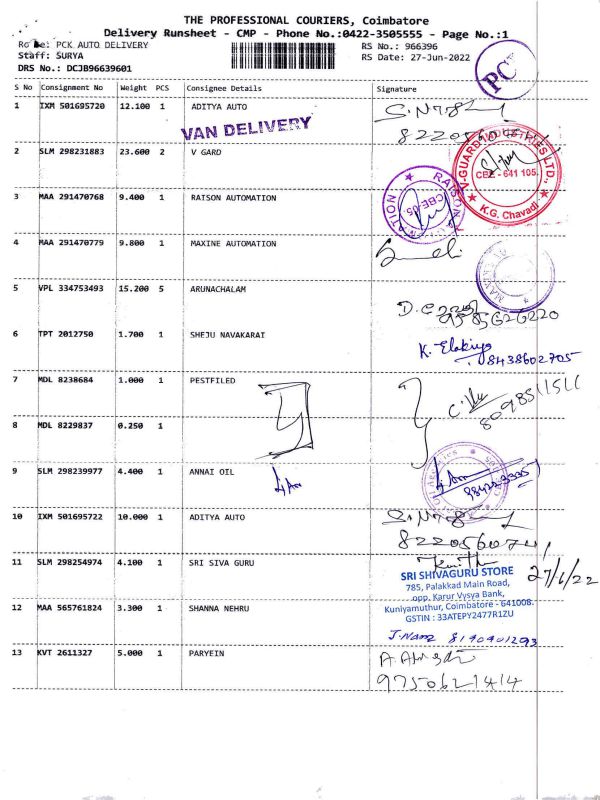 THE PROFESSIONAL COURIERS, Coimbatore
Delivery Runsheet - CMP - Phone No.:0422-3505555 - Page No.:1
PCK AUTO DELIVERY RS No.: 966396
Staff: SURYA RS Date: 27-Jun-2022
DRS No.: DCJB96639601
PC
S No Consignment No Weight PCS Consignee Details Signature
1 IXM 501695720 12.100 1 ADITYA AUTO
VAN DELIVERY
2 SLM 298231883 23.600 2 V GARD
V-GUARD INDUSTRIES LTD.,
CBE - 641 105.
K.G. Chavadi
3 MAA 291470768 9.400 1 RATSON AUTOMATION
RATSON
CBE-05
4 MAA 291470779 9.800 1 MAXINE AUTOMATION
5 VPL 334753493 15.200 5 ARUNACHALAM
6 TPT 2012750 1.700 1 SHEJU NAVAKARAI
K. Elakiya
8438602705
7 MDL 8238684 1.000 1 PESTFILED
8098511511
8 MDL 8229837 0.250 1
9 SLM 298239977 4.400 1 ANNAI OIL
10 IXM 501695722 10.000 1 ADITYA AUTO
11 SLM 298254974 4.100 1 SRI SIVA GURU
27/6/22
SRI SHIVAGURU STORE
785, Palakkad Main Road,
opp. Karur Vysya Bank,
Kuniyamuthur, Coimbatore - 641008.
GSTIN : 33ATEPY2477R1ZU
12 MAA 565761824 3.300 1 SHANNA NEHRU
8190901293
13 KVT 2611327 5.000 1 PARYEIN
9750621414